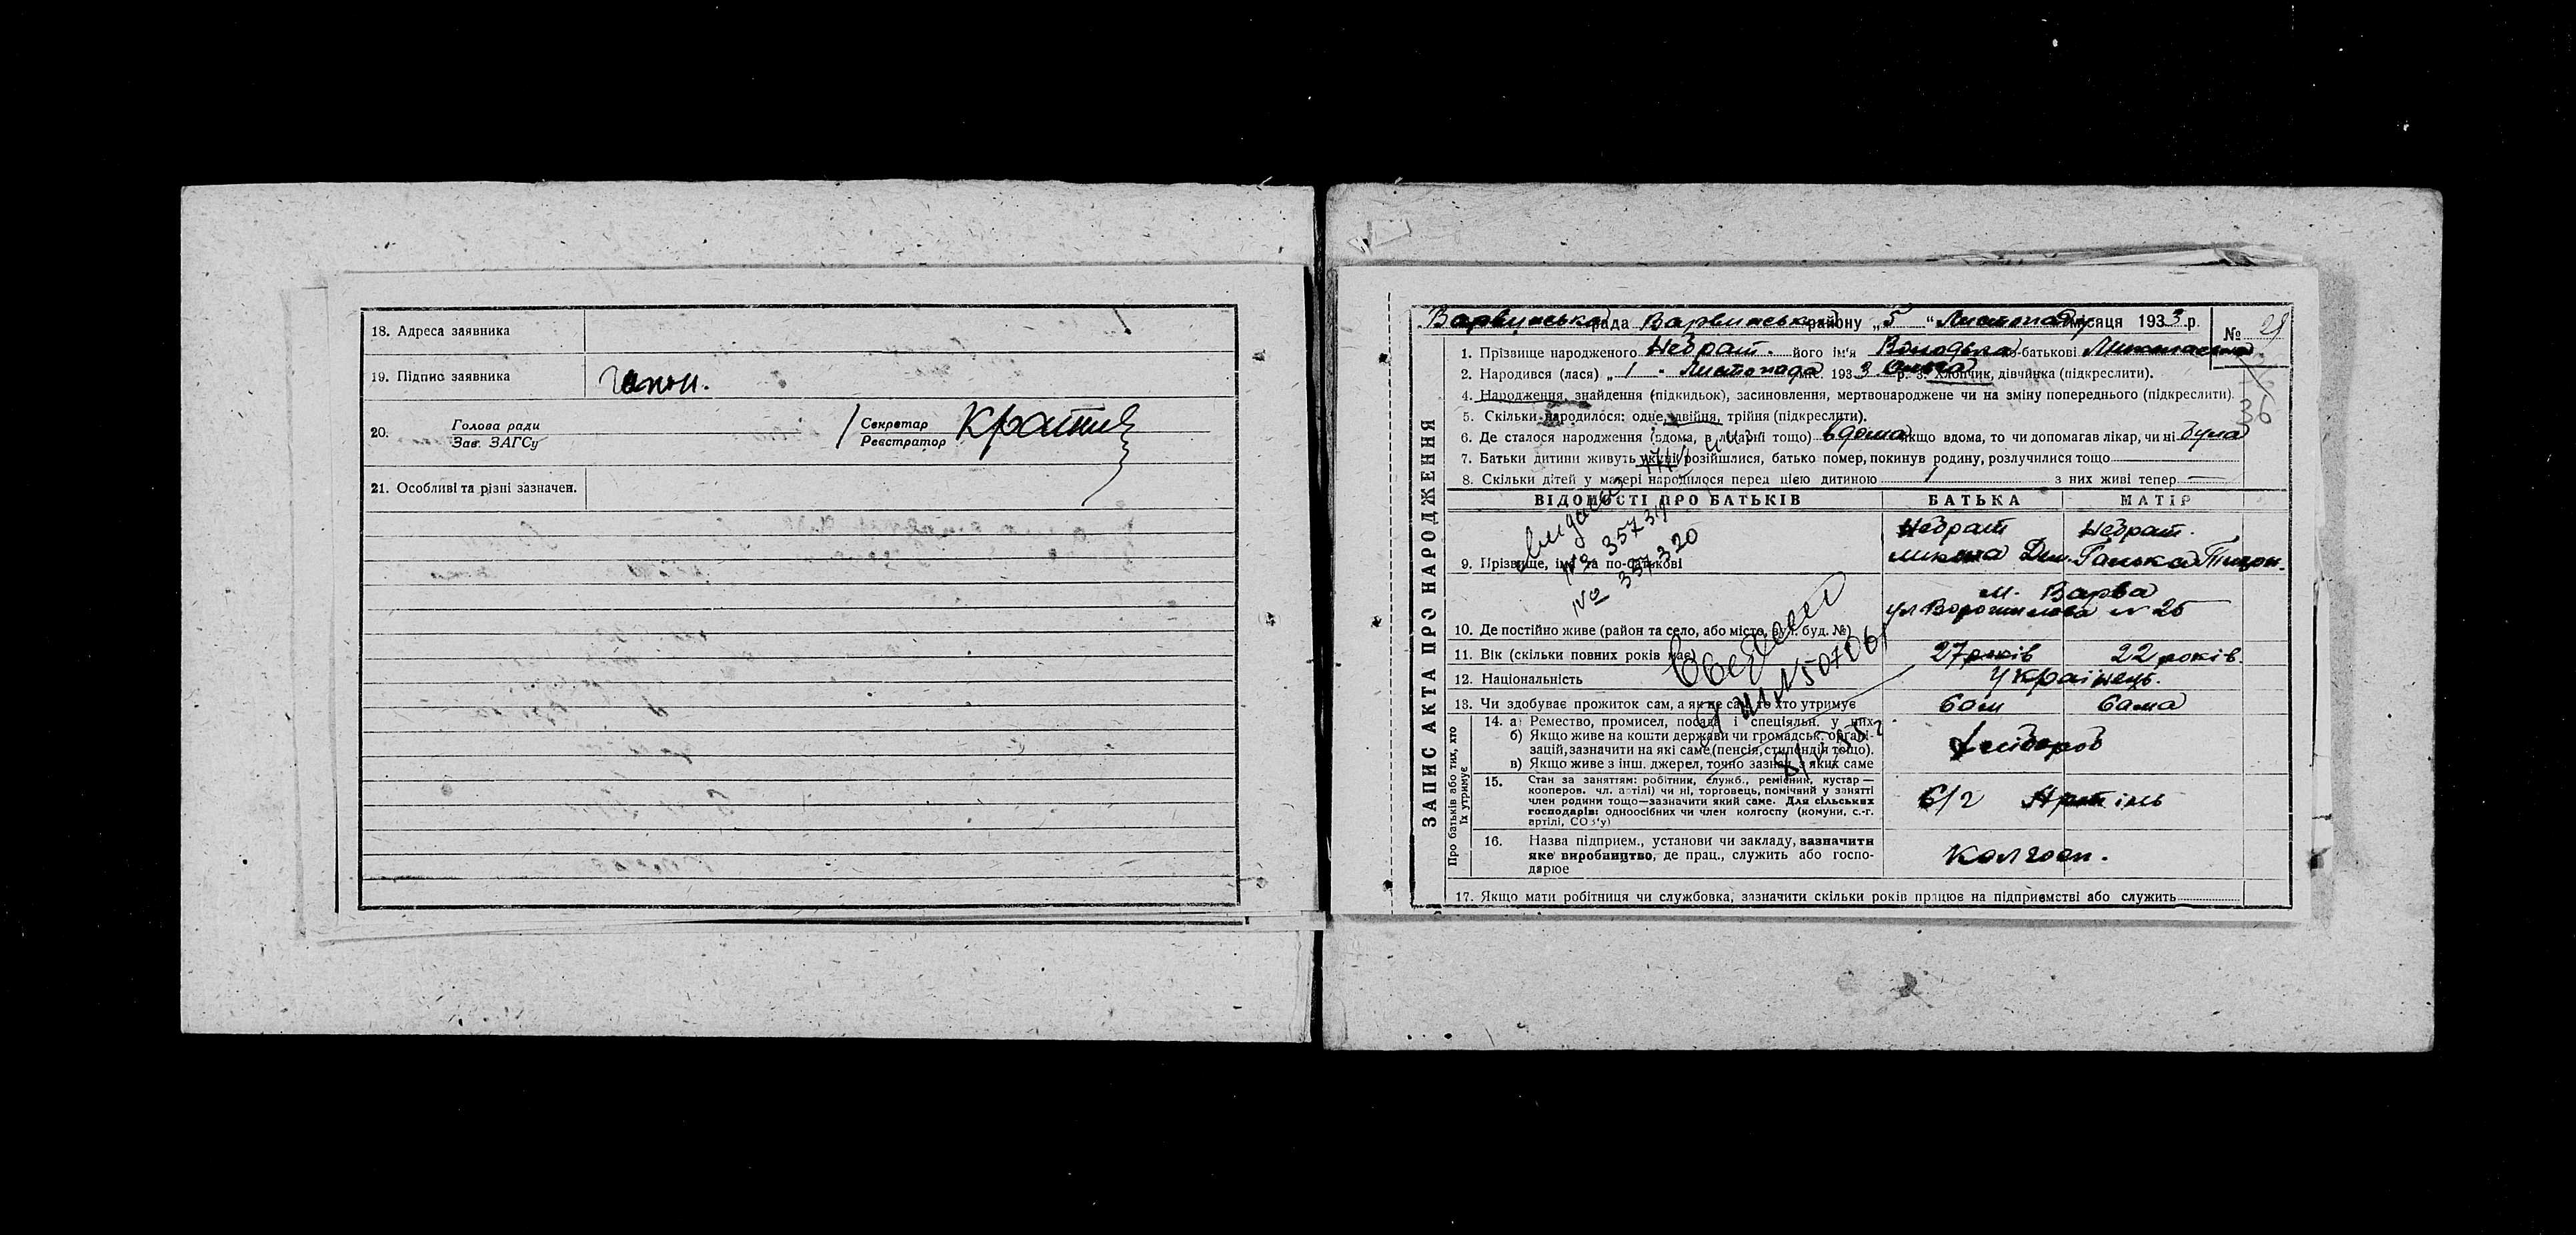 18. Адреса заявника
19. Підпис заявника
20. Голова ради
Зав. ЗАГСу
Секретар
Реєстратор
21. Особливі та різні зазначен.
ЗАПИС АКТА ПРО НАРОДЖЕННЯ
Варвинська рада Варвинського району „ 5 “ Листопада місяця 1933 р. № 29
1. Прізвище народженого Небрат. його ім'я Володька по-батькові
Ольга
2. Народився (лася) „ 1 “ Листопада міс. 1933 р. 3. Хлопчик, дівчинка (підкреслити).
4. Народження, знайдення (підкидьок), засиновлення, мертвонароджене чи на зміну попереднього (підкреслити)
36
5. Скільки народилося: одне, двійня, трійня (підкреслити).
6. Де сталося народження (вдома, в лікарні тощо) вдома якщо вдома, то чи допомагав лікар, чи ні була
7. Батьки дитини живуть укупі, розійшлися, батько помер, покинув родину, розлучилися тощо
8. Скільки дітей у матері народилося перед цією дитиною 1 з них живі тепер —
ВІДОМОСТІ ПРО БАТЬКІВ БАТЬКА МАТІР
Небрат Небрат.
9. Прізвище, ім'я та по-батькові Микола Дем. Ганька
№ 357320
м. Варва
ул Ворошилова № 25
10. Де постійно живе (район та село, або місто, вул. буд. №)
11. Вік (скільки повних років має) 27 років 22 років.
12. Національність Українець.
13. Чи здобуває прожиток сам, а як не сам, то хто утримує сам сама
Про батьків або тих, хто їх утримує
14. а) Ремество, промисел, посада і спеціяльн. у них
б) Якщо живе на кошти держави чи громадськ. органі-
зацій, зазначити на які саме (пенсія, стипендія тощо).
в) Якщо живе з інш. джерел, точно зазнач. з яких саме
Хлібороб
15. Стан за заняттям: робітник, служб., ремісник, кустар —
кооперов. чл. артілі) чи ні, торговець, помічний у занятті
член родини тощо—зазначити який саме. Для сільських
господарів: одноосібних чи член колгоспу (комуни, с.-г.
артілі, СОЗ'у)
С/г Артіль
16. Назва підприєм., установи чи закладу, зазначити
яке виробництво, де прац., служить або госпо-
дарює
Колгосп.
17. Якщо мати робітниця чи службовка, зазначити скільки років працює на підприємстві або служить